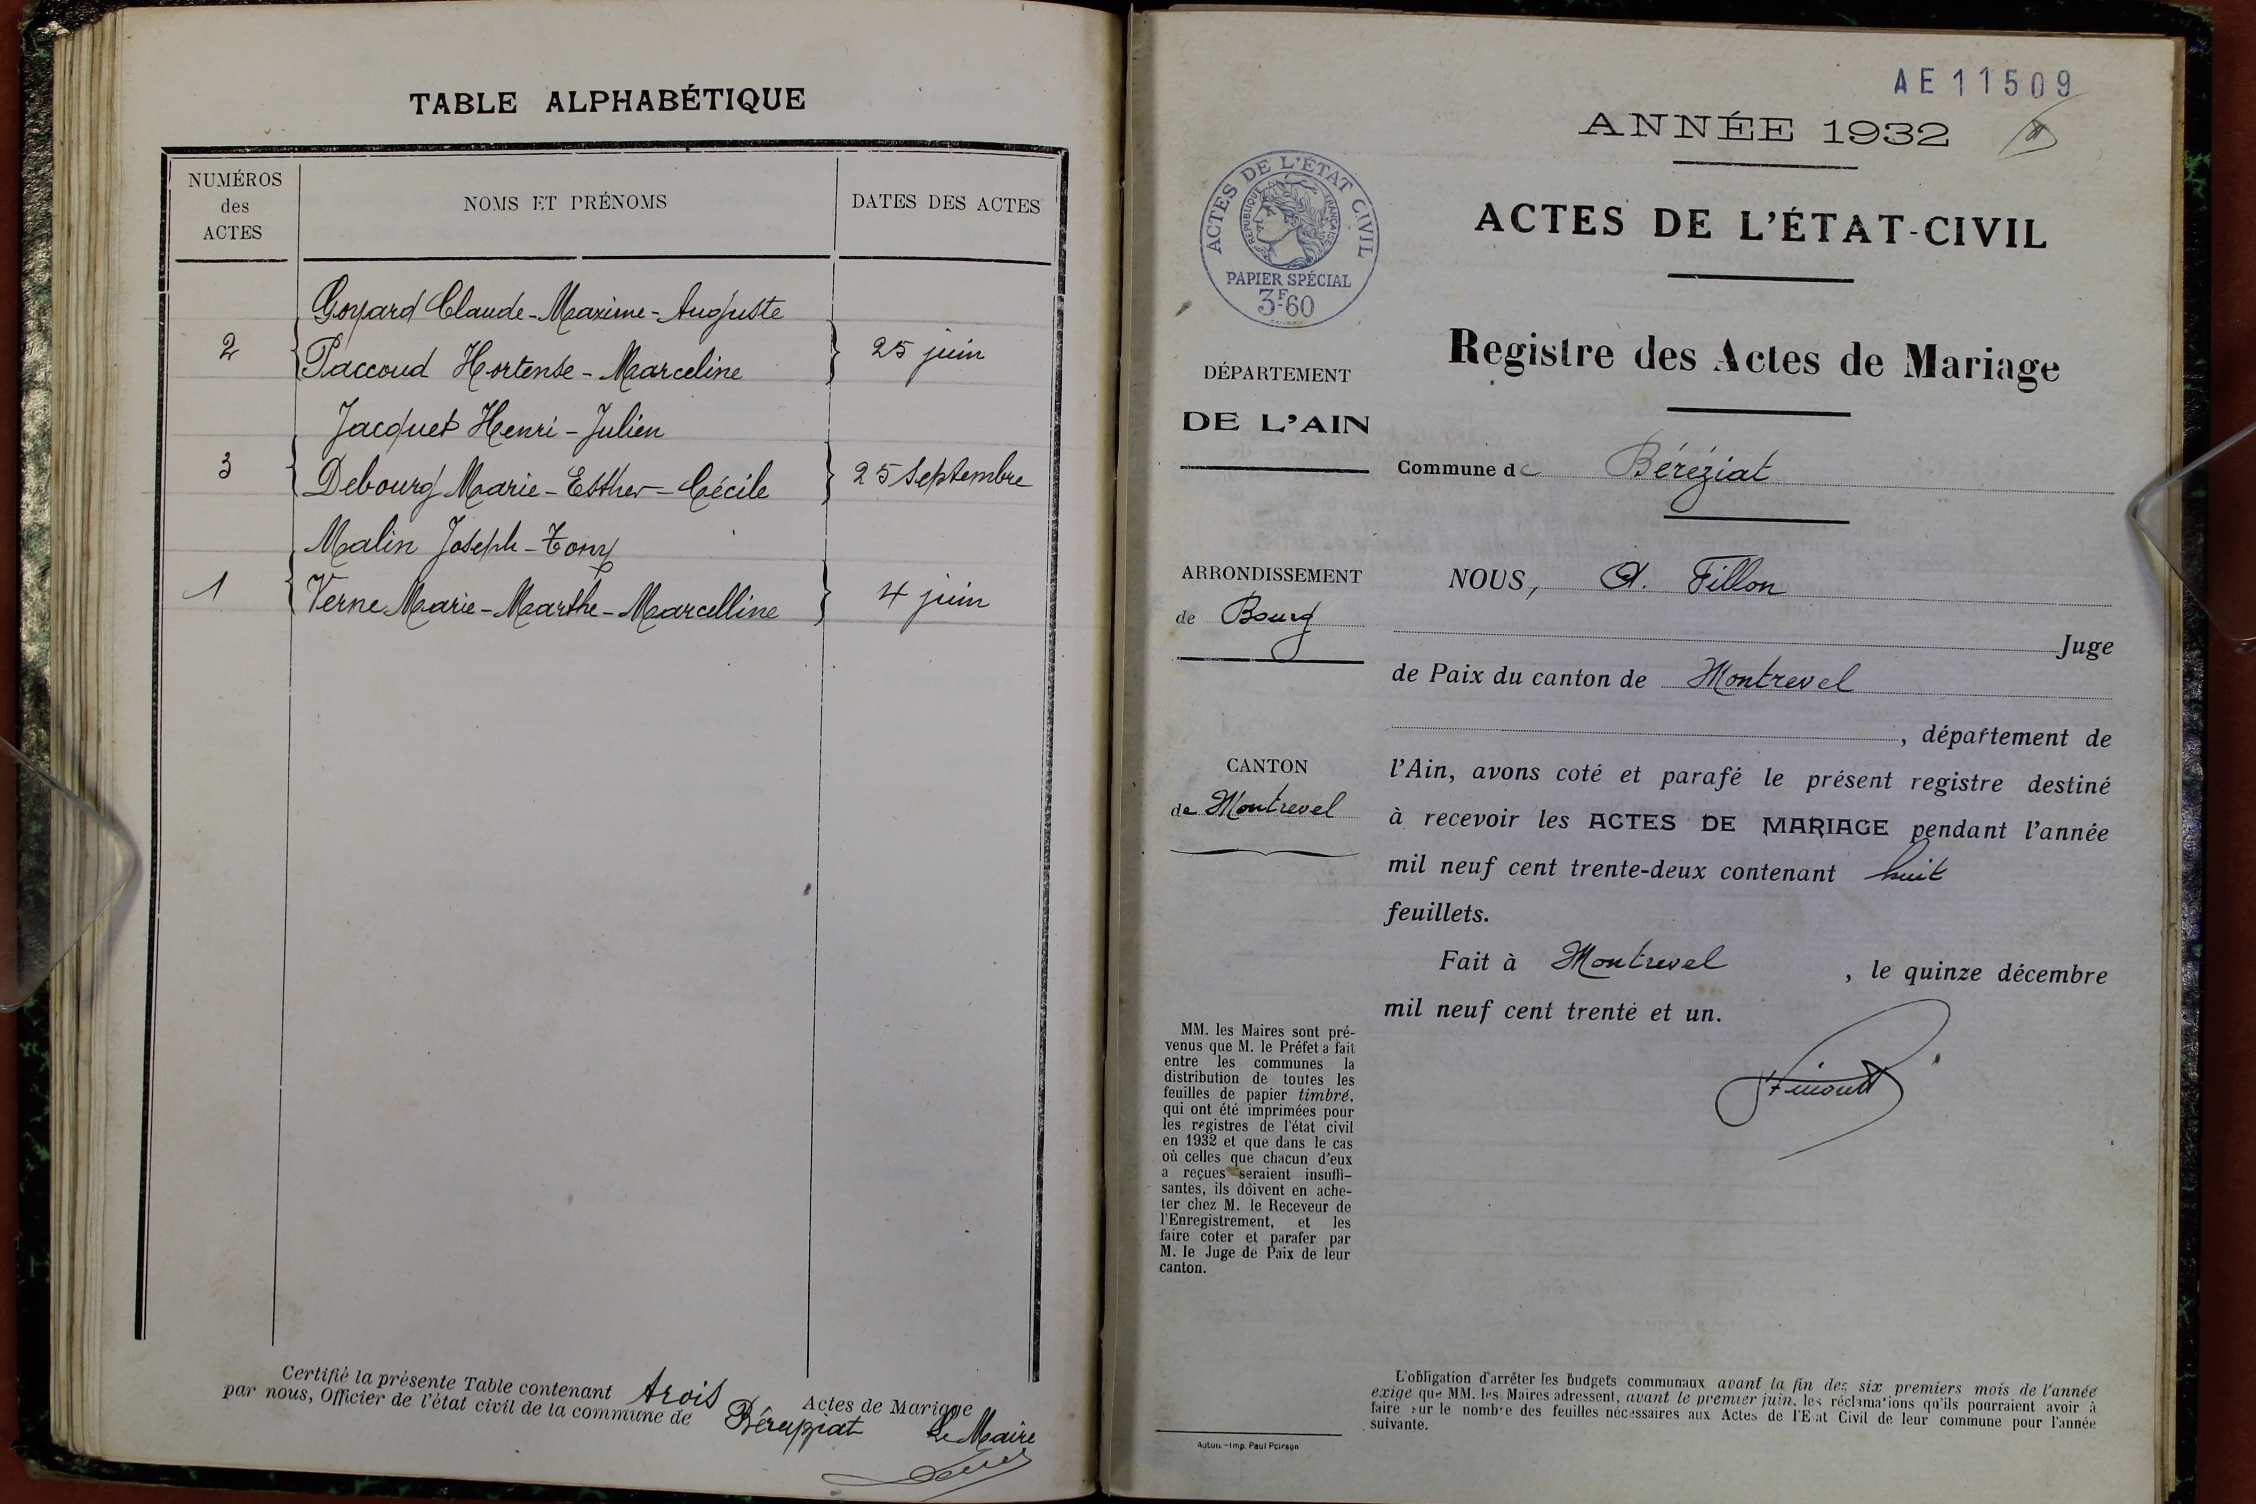 TABLE ALPHABÉTIQUE
NUMÉROS
des
ACTES
NOMS ET PRÉNOMS
DATES DES ACTES
Goyard Claude-Maxime-Auguste
2 Paccoud Hortense-Marceline 25 juin
Jacquet Henri-Julien
3 Debourg Marie-Esther-Cécile 25 Septembre
Malin Joseph-Tony
1 Verne Marie-Marthe-Marcelline 4 juin
Certifié la présente Table contenant trois Actes de Mariage
par nous, Officier de l'état civil de la commune de
Béreyziat Le Maire
AE11509
ANNÉE 1932
ACTES DE L'ÉTAT-CIVIL
Registre des Actes de Mariage
ACTES DE L'ÉTAT CIVIL
RÉPUBLIQUE FRANÇAISE
PAPIER SPÉCIAL
3F60
DÉPARTEMENT
DE L'AIN
ARRONDISSEMENT
de Bourg
CANTON
de Montrevel
MM. les Maires sont pré-
venus que M. le Préfet a fait
entre les communes la
distribution de toutes les
feuilles de papier timbré,
qui ont été imprimées pour
les registres de l'état civil
en 1932 et que dans le cas
où celles que chacun d'eux
a reçues seraient insuffi-
santes, ils doivent en ache-
ter chez M. le Receveur de
l'Enregistrement, et les
faire coter et parafer par
M. le Juge de Paix de leur
canton.
Autun.-Imp. Paul Poirson
Commune de Béréziat
NOUS, A. Fillon
Juge
de Paix du canton de Montrevel
, département de
l'Ain, avons coté et parafé le présent registre destiné
à recevoir les ACTES DE MARIAGE pendant l'année
mil neuf cent trente-deux contenant huit
feuillets.
Fait à Montrevel , le quinze décembre
mil neuf cent trente et un.
L'obligation d'arrêter les budgets communaux avant la fin des six premiers mois de l'année
exige que MM. les Maires adressent, avant le premier juin, les réclamations qu'ils pourraient avoir à
faire sur le nombre des feuilles nécessaires aux Actes de l'Etat Civil de leur commune pour l'année
suivante.